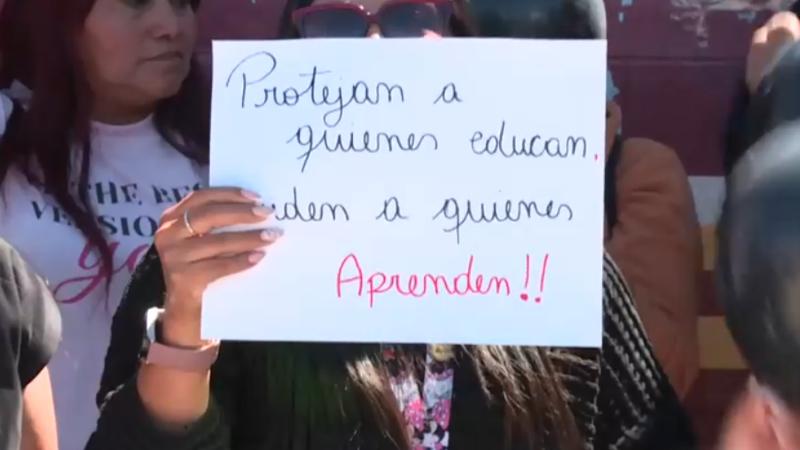 Protejan a
quienes educan.
a quienes
Aprenden!!
THE BE
VERSIO